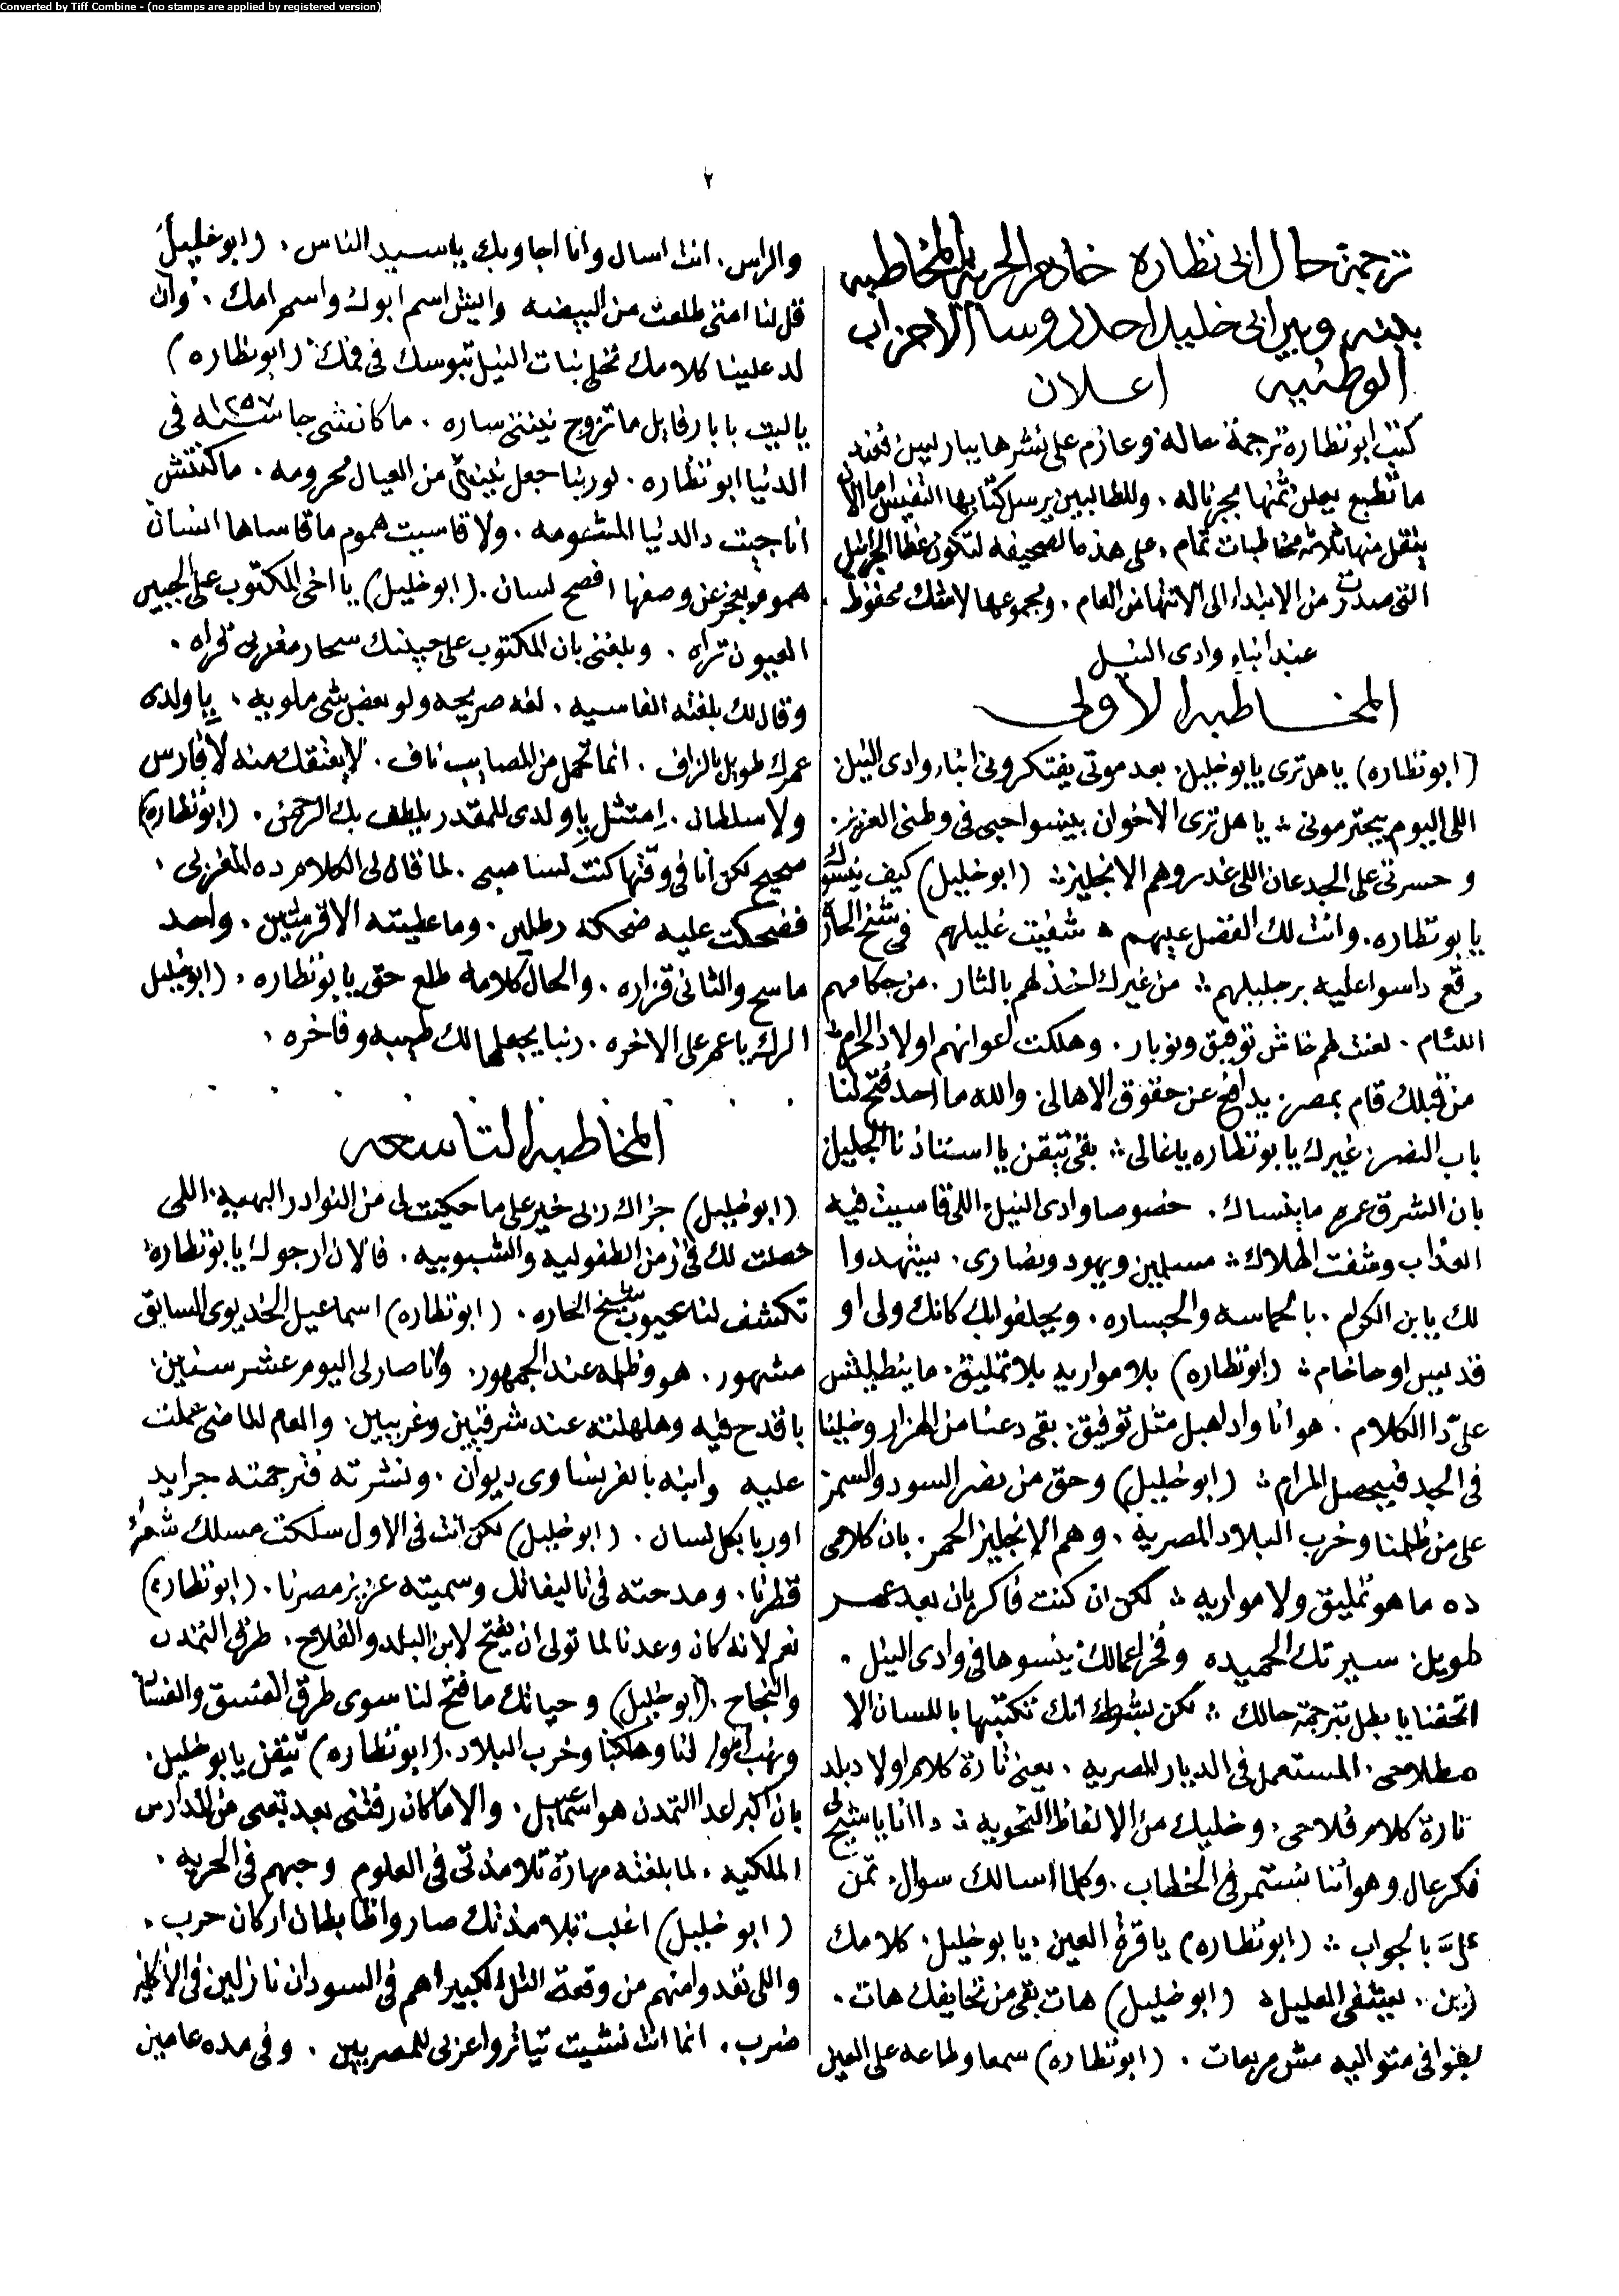 Converted by Tiff Combine - (no stamps are applied by registered version)
٢
ترجمة حال ابى نظاره خادم الحريه بالمخاطبه
بينه وبين ابى خليل احد روسا الاحزاب
الوطنيه اعلان
كتب ابو نظارة ترجمة حاله وعازم على نشرها بباريس فعند
ما تطبع يعلن ثمنها بجرناله . وللطالبين يرسل كتابها النفيس اما الآن
ينقل منها ثلاثه مخاطبات تمام . على هذه الصحيفه لتكون غطا الجرانيل
التى صدرت من الابتداء الى الانتها من العام . ومجموعها لاشك محفوظ
عند ابناء وادى النيل
المخاطبه الاولى
(ابو نظاره) يا هل ترى يا بو خليل . بعد موتى يفتكرونى ابناء وادى النيل
اللى اليوم بيحترمونى ؞ يا هل ترى الاخوان بينسوا حبى فى وطنى العزيز .
وحسرتى على الجدعان اللى غدروهم الانجليز ؞ (ابو خليل) كيف ينسوك
يا بو نظاره . وانت لك الفضل عليهم ؞ شفيت غليلهم فى شيخ الحاره
داسوا عليه برجليهم ؞ من غيرك اخذ لهم بالتار . من حكامهم
اللئام . لعنت لهم خاش توفيق ونوبار . وهلكت اعوانهم اولاد الحرام ؞
من قبلك قام بمصر . يدافع عن حقوق الاهالى . والله ما احد فتح لنا
باب النصر . غيرك يا بو نظاره يا غالى ؞ بقى تيقن يا استاذنا الجليل
بان الشرق عمره ما ينساك . خصوصا وادى النيل . اللى قاسيت فيه
العذاب وشفت الهلاك ؞ مسلمين ويهود ونصارى . بيشهدوا
لك يا بن الكرام . بالحماسه والجساره . ويحلفوا بك كانك ولى او
قديس او حاخام ؞ (ابو نظاره) بلا مواريه بلا تمليق . ما ينطليش
علىّ دا الكلام . هو انا واد اهبل مثل توفيق . بقى دعنا من الهزار وخلينا
فى الجد فيحصل المرام ؞ (ابو خليل) وحق من نصر السود والسمر
على من ظلمنا وخرب البلاد المصريه . وهم الانجليز الحمر . بان كلامى
ده ما هو تمليق ولا مواريه ؞ لكن ان كنت فاكر بان بعد عمر
طويل . سيرتك الحميده وفخر اعمالك ينسوها فى وادى النيل .
اتحفنا يا بطل بترجمة حالك ؞ لكن بشرط انك تكتبها باللسان الا
صطلاحى . المستعمل فى الديار المصريه . يعنى تارة كلام اولاد بلد
تارة كلام فلاحى . وخليك من الالفاظ النحويه ؞ دا انا يا شيخ لى
فكر عال وهو اننا نستمر فى الخطاب . وكلما اسالك سوال . تمن
علىّ بالجواب ؞ (ابو نظاره) يا قرة العين . يا بو خليل . كلامك
زين . يشفى العليل ؞ (ابو خليل) هات بقى من تحايفك هات .
بقوافى متواليه مش مربعات . (ابو نظاره) سمعا وطاعه على العين
والراس . انت اسال وانا اجاوبك يا سيد الناس . (ابو خليل)
قل لنا امتى طلعت من البيضه وايش اسم ابوك واسم امك . وان
لد علينا كلامك نخلى بنات النيل تبوسك فى فمك . (ابو نظاره)
يا ليت بابا رفايل ما تزوج نينتى ساره . ما كانشى جا سنة ١٢٥٧ فى
الدنيا ابو نظاره . لو ربنا جعل نينتى من العيال محرومه . ما كنتش
انا جيت دالدنيا المشئومه . ولا قاسيت هموم ما قاساها انسان
هموم يعجز عن وصفها افصح لسان . (ابو خليل) يا اخى المكتوب على الجبين
العيون تراه . وبلغنى بان المكتوب على جبينك سحار مغربى قراه .
وقال لك بلغته الفاسيه . لغه صريحه ولو بعض شى ملويه . يا ولدى
عمرك طويل بالزاف . انما تحمل من المصايب ناف . لا يعتقك منه لا فارس
ولا سلطان . امتثل يا ولدى للمقدر يلطف بك الرحمن . (ابو نظاره)
صحيح لكن انا فى وقتها كنت لسا صبى . لما قال لى الكلام ده المغربى .
فضحكت عليه ضحكته رطلين . وما عطيته الا قرشين . واحد
ماسح والثانى قزازه . والحال كلامه طلع حق يا بو نظاره . (ابو خليل)
الرك يا عم على الاخره . ربنا يجعلها لك طيبه وفاخره .
المخاطبه التاسعه
(ابو خليل) جزاك ربى خير على ما حكيت لى من النوادر البهيه . اللى
حصلت لك فى زمن الطفوليه والشبوبيه . فالان ارجوك يا بو نظاره
تكشف لنا عيوب شيخ الحاره . (ابو نظاره) اسماعيل الخديوى السابق
مشهور . هو وظلمه عند الجمهور . وانا صار لى اليوم عشر سنين .
باقدح فيه وهلهلته عند شرقيين وغربيين . والعام الماضى عملت
عليه وابنه بالفرنساوى ديوان . ونشرته فترجمته جرايد
اوربا بكل لسان . (ابو خليل) لكن انت فى الاول سلكت مسلك شعراء
قطرنا . ومدحته فى تاليفاتك وسميته عزيز مصرنا . (ابو نظاره)
نعم لانه كان وعدنا لما تولى ان يفتح لابن البلد والفلاح . طرق التمدن
والنجاح . (ابو خليل) وحياتك ما فتح لنا سوى طرق الفسق والفساد
ونهب اموالنا وهلكنا وخرب البلاد . (ابو نظاره) تيقن يا بو خليل .
بان اكبر اعدا التمدن هو اسماعيل . والا ما كان رفتنى بعد تعبى من المدارس
الملكيه . لما بلغته مهارة تلامذتى فى العلوم وحبهم فى الحريه .
(ابو خليل) اغلب تلامذتك صاروا ظابطان اركان حرب .
واللى نفدوا منهم من وقعة التل الكبير اهم فى السودان نازلين فى الانكليز
ضرب . انما انت نشيت تياترو عربى للمصريين . وفى مده عامين